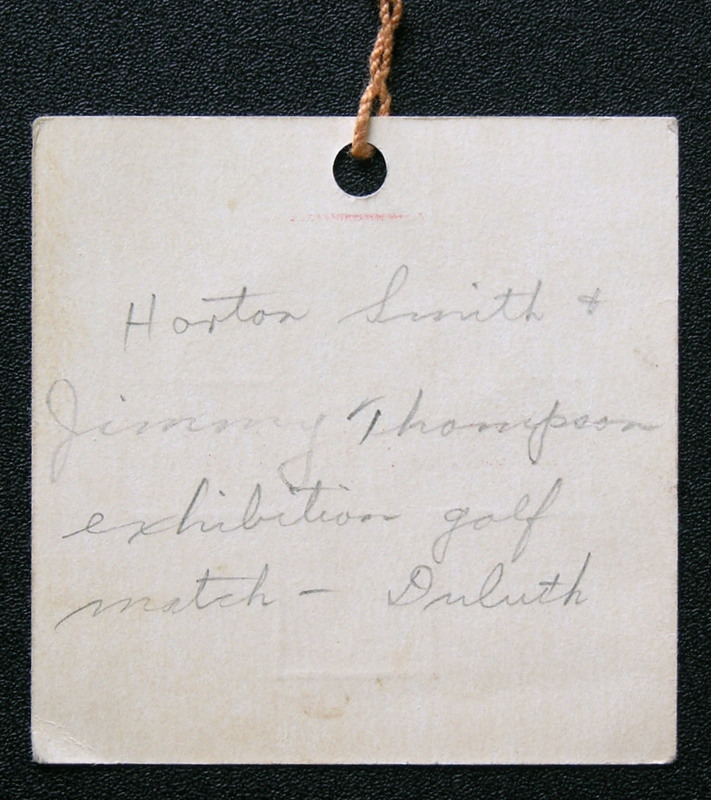 Horton Smith &
Jimmy Thompson
exhibition golf
match - Duluth